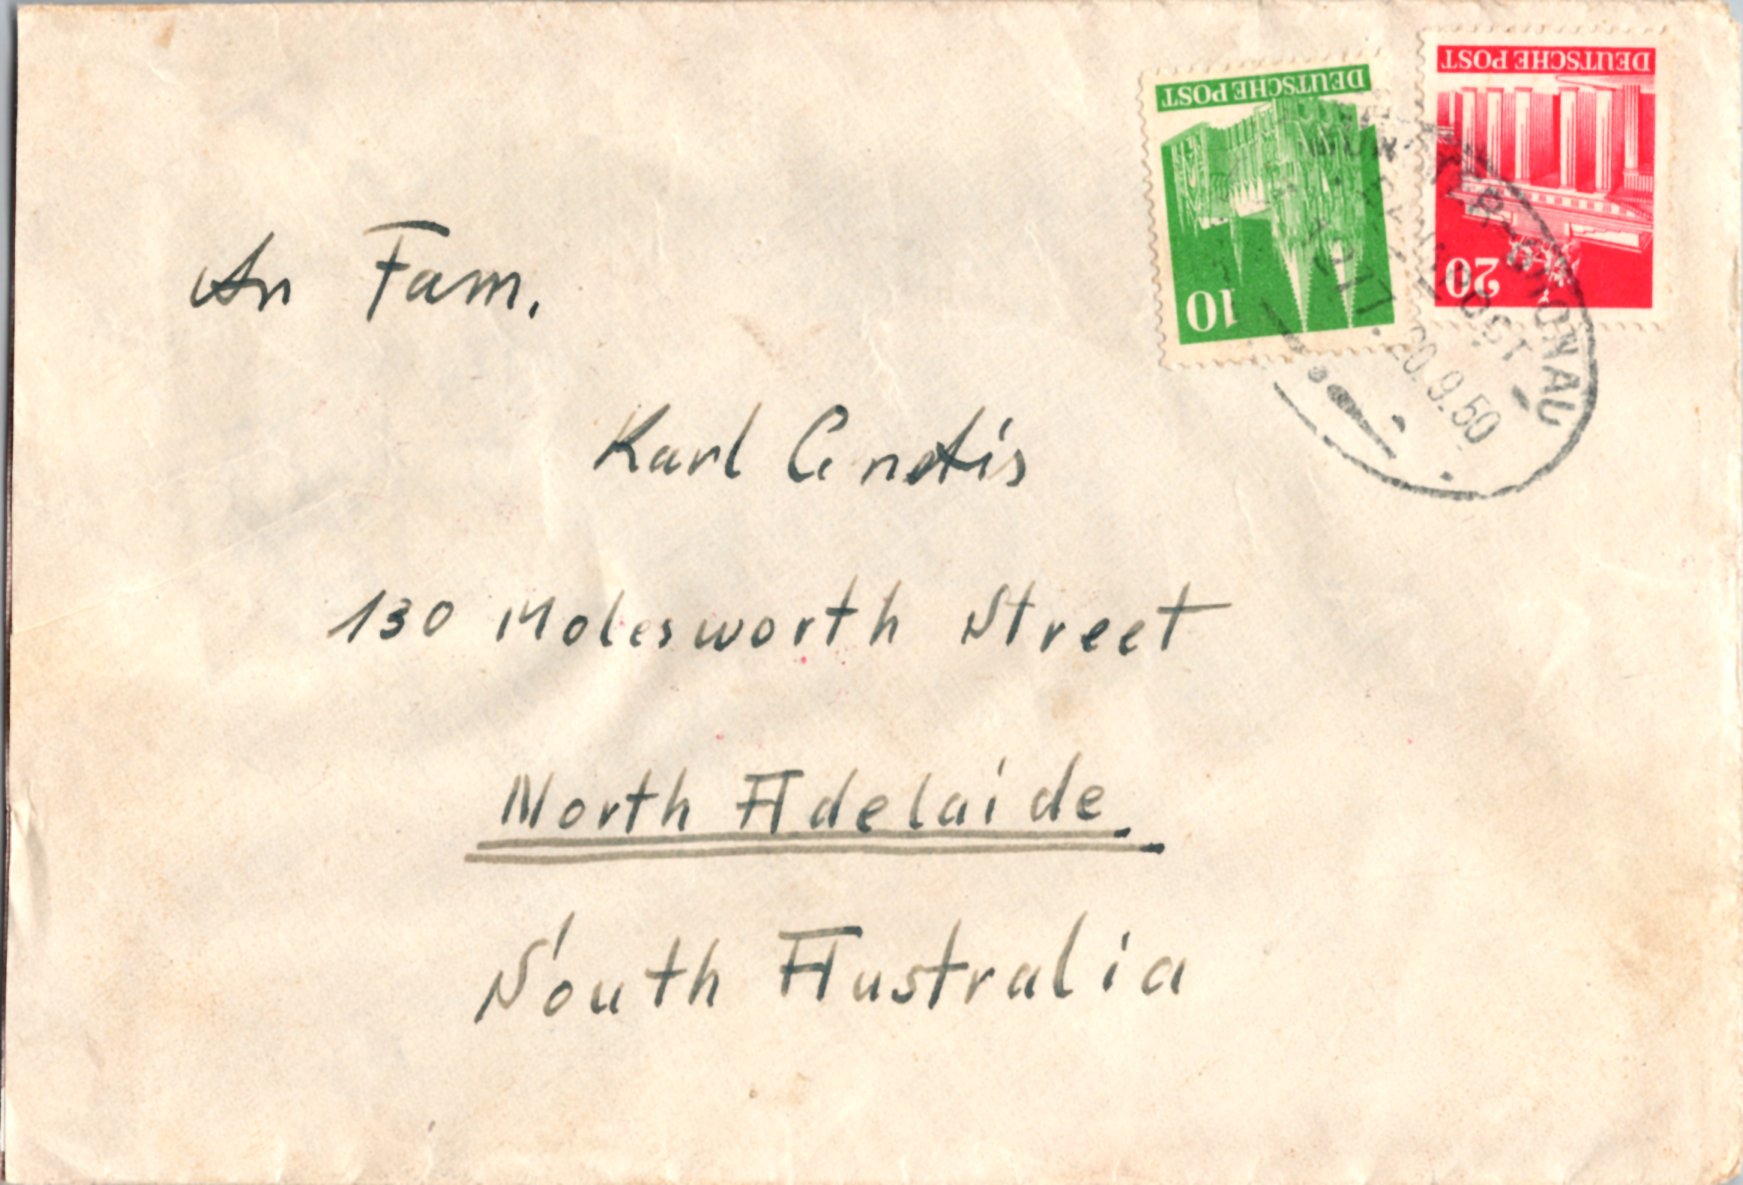 DEUTSCHE POST
10
DEUTSCHE POST
20
BAHNPOST
20.9.50
An Fam.
Karl
130 Molesworth Street
North Adelaide.
South Australia